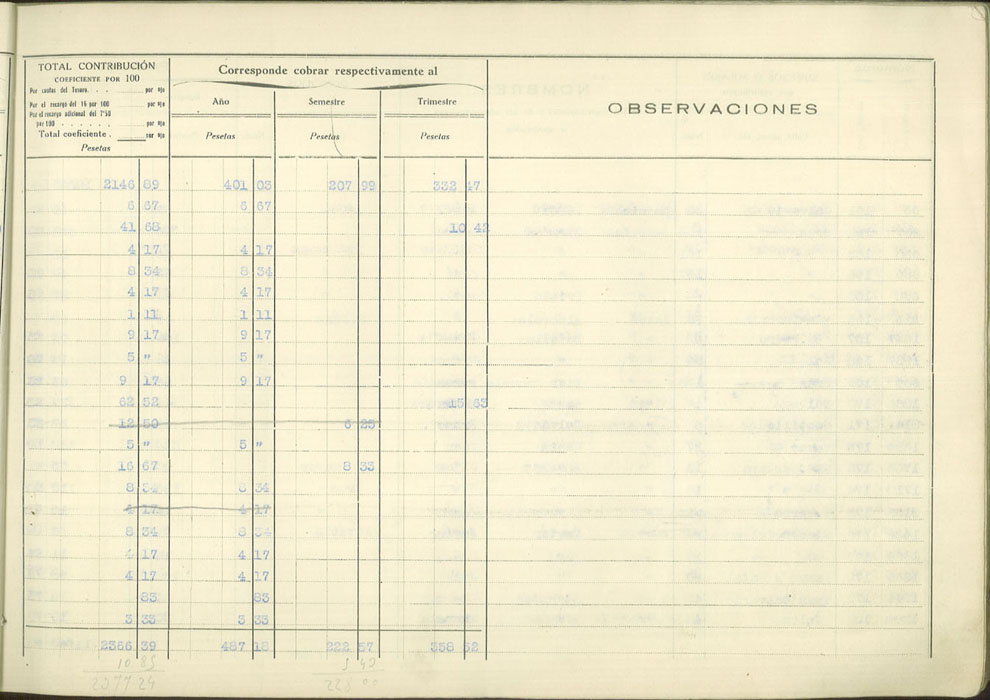 TOTAL CONTRIBUCIÓN
COEFICIENTE POR 100
Por cuotas del Tesoro. . . por 0/0
Por el recargo del 16 por 100 por 0/0
Por el recargo adicional del 7'50
por 100 . . . . . . por 0/0
Total coeficiente . por 0/0
Pesetas
Corresponde cobrar respectivamente al
Año Semestre Trimestre
Pesetas Pesetas Pesetas
OBSERVACIONES
2146 89 401 03 207 99 332 47
6 67 6 67
41 68 10 42
4 17 4 17
8 34 8 34
4 17 4 17
1 11 1 11
9 17 9 17
5 " 5 "
9 17 9 17
62 52 15 63
12 50 6 25
5 " 5 "
16 67 8 33
8 34 8 34
4 17 4 17
8 34 8 34
4 17 4 17
4 17 4 17
83 83
3 33 3 33
2366 39 487 18 222 57 358 52
10 85
2377 24
228 00